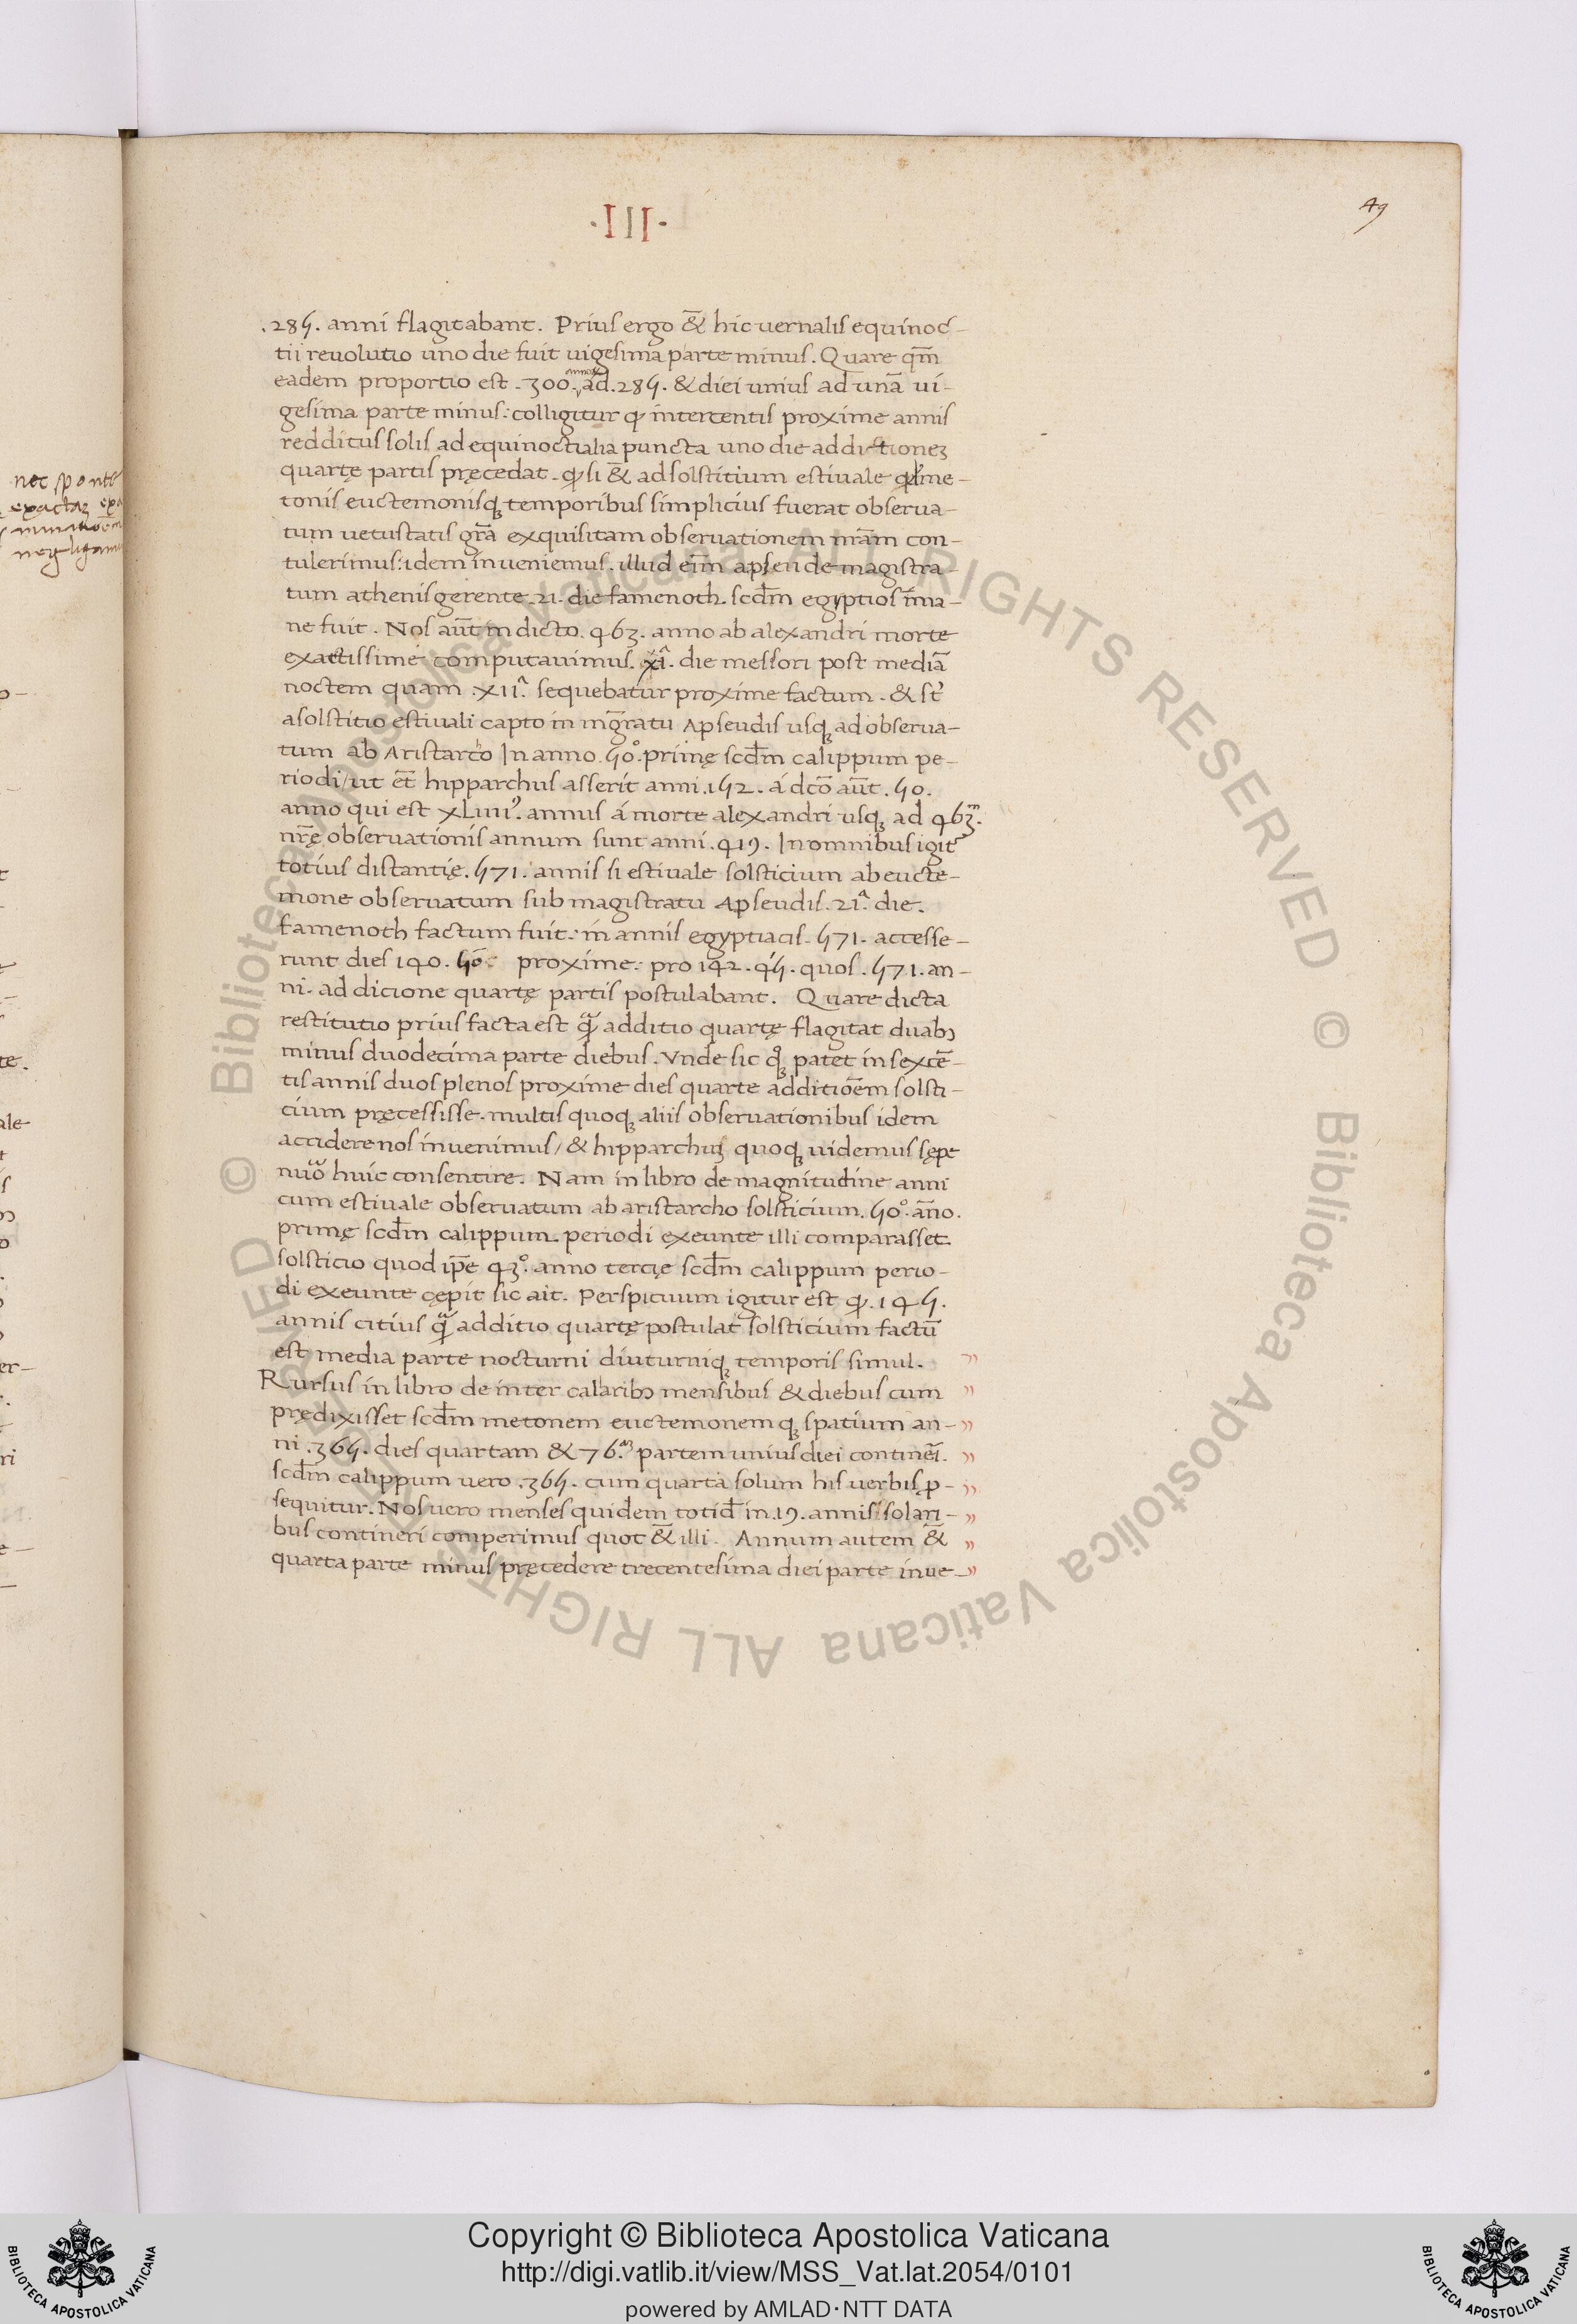 ·III·
49
.285. anni flagitabant. Prius ergo & hic uernalis equinoc-
tii reuolutio uno die fuit uigesima parte minus. Quare qm̅
eadem proportio est .300. annoꝝ ad .285. & diei unius ad unā ui-
gesima parte minus: colligitur ꝙ intercentis proxime annis
redditus solis ad equinoctialia puncta uno die addictionez
quartę partis pręcedat. ꝙ si & ad solstitium estiuale me-
tonis euctemonisqꝫ temporibus simplicius fuerat obserua-
tum uetustatis gr̅a exquisitam obseruationem nr̅am con-
tulerimus: idem inueniemus. illud ei̅m apseude magistra-
tum athenis gerente .21. die famenoth. scd̅m egyptios ma-
ne fuit. Nos aut̅ in dicto. 463. anno ab alexandri morte
exactissime computauimus. xi. die messori post mediā
noctem quam .XIIᵃ. sequebatur proxime factum. & st̅
a solstitio estiuali capto in mg̅ratu Apseudis usqꝫ ad obserua-
tum ab Aristarco In anno .50°. primę scd̅m calippum pe-
riodi/ ut et̅ hipparchus asserit anni .152. á dc̅o aut̅ .50.
anno qui est XLIIII. annus á morte alexandri usqꝫ ad 463ᵐ.
nr̅ę obseruationis annum sunt anni .419. In omnibus igit̅
totius distantię .571. annis si estiuale solsticium ab eucte-
mone obseruatum sub magistratu Apseudis .21ᵃ. die.
famenoth factum fuit: in annis egyptiacis .571. accesse-
runt dies 140. 50 proxime: pro 142. 45. quos .571. an-
ni. addicione quartę partis postulabant. Quare dicta
restitutio prius facta est ꝙᵃ additio quartę flagitat duabꝫ
minus duodecima parte diebus. Vnde sic qꝫ patet in sexcē-
tis annis duos plenos proxime dies quarte additiōem solsti-
cium pręcessisse. multis quoqꝫ aliis obseruationibus idem
accidere nos inuenimus/ & hipparchuꝫ quoqꝫ uidemus sępe
nuo̅ huic consentire. Nam in libro de magnitudine anni
cum estiuale obseruatum ab aristarcho solsticium .50°. an̅o.
primę scd̅m calippum. periodi exeunte illi comparasset
solsticio quod ip̅e 43°. anno tercię scd̅m calippum perio-
di exeunte cępit sic ait. Perspicuum igitur est ꝙ .145.
annis citius ꝙᵃ additio quartę postulat solsticium factū
est media parte nocturni diuturniqꝫ temporis simul. ”
Rursus in libro de inter calaribꝫ mensibus & diebus cum ”
prędixisset scd̅m metonem euctemonemqꝫ spatium an- ”
ni .365. dies quartam & 76. partem unius diei contineri. ”
scd̅m calippum uero .365. cum quarta solum his uerbis ꝓ- ”
sequitur. Nos uero menses quidem totid̅ in .19. annis solari- ”
bus contineri comperimus quot & illi. Annum autem & ”
quarta parte minus pręcedere trecentesima diei parte inue- ”
nec sponte
negligam
Copyright © Biblioteca Apostolica Vaticana
http://digi.vatlib.it/view/MSS_Vat.lat.2054/0101
powered by AMLAD·NTT DATA